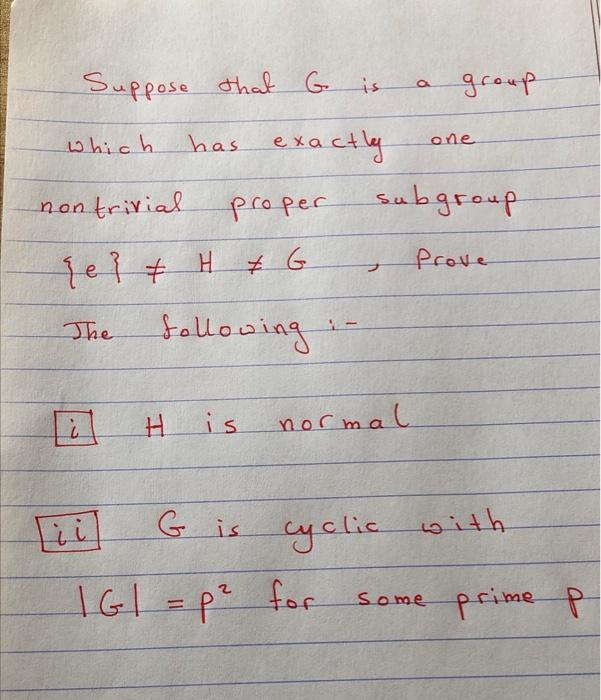 Suppose that G is a group
which has exactly one
nontrivial proper subgroup
{e} ≠ H ≠ G , Prove
The following :-
i H is normal
ii G is cyclic with
|G| = p² for some prime p